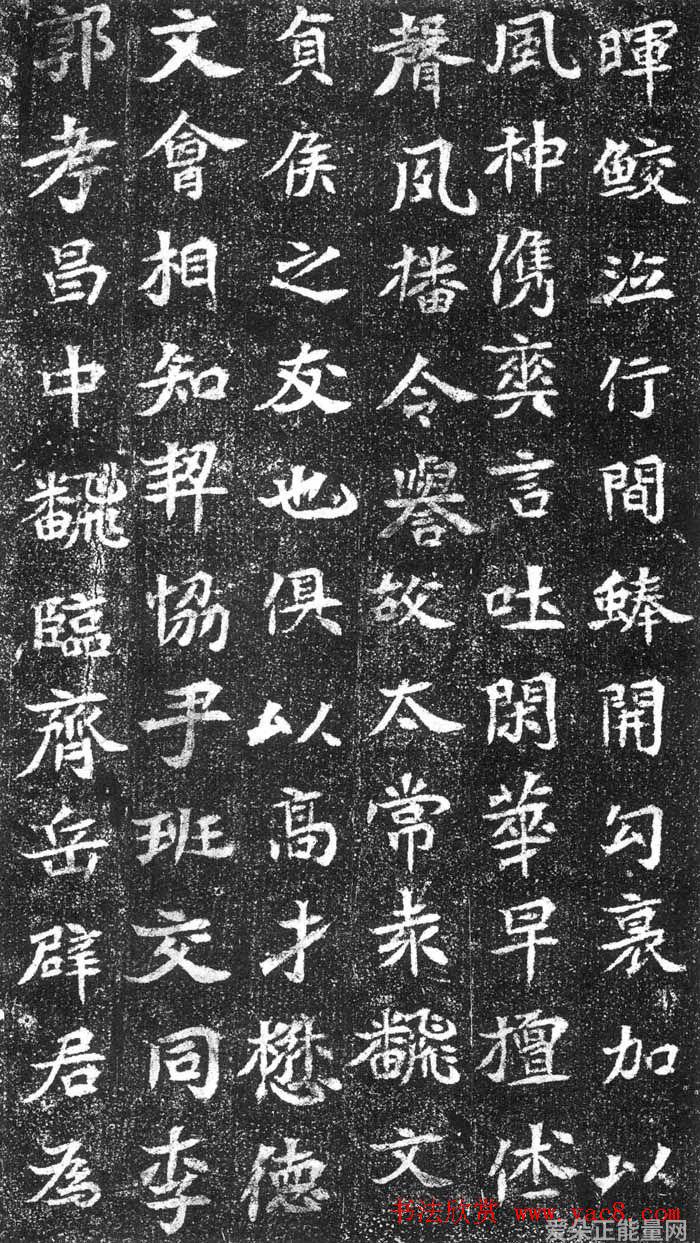 暉鮫泣行間開勾裏加以
風神儁爽言吐閑華早擅
聲夙播令譽故太常飜文
貞侯之友也俱以高才懋德
文會相知契協尹班交同李
郭孝昌中飜臨齊岳辟君為
书法欣赏 www.yac8.com
爱朵正能量网